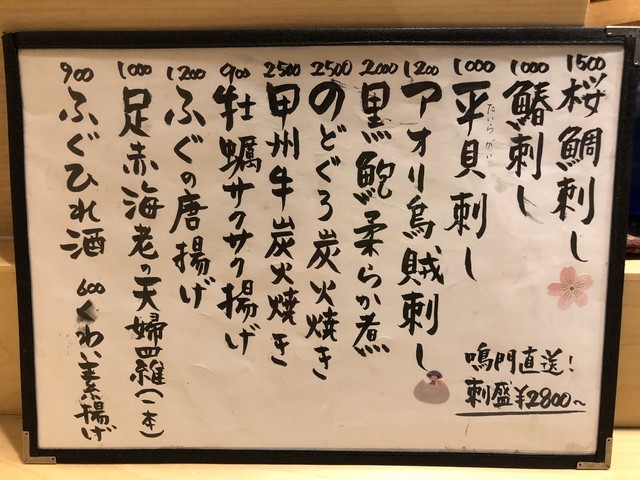 1500
桜鯛刺し
1000
鰆刺し
1000
平貝刺し
たいらがい
1200
アオリ烏賊刺し
2000
黒鮑柔らか煮
2500
のどぐろ炭火焼き
2500
甲州牛炭火焼き
900
牡蠣サクサク揚げ
1200
ふぐの唐揚げ
1000
足赤海老の天婦羅(一本)
900
ふぐひれ酒
600
くわい素揚げ
鳴門直送!
刺盛¥2800~